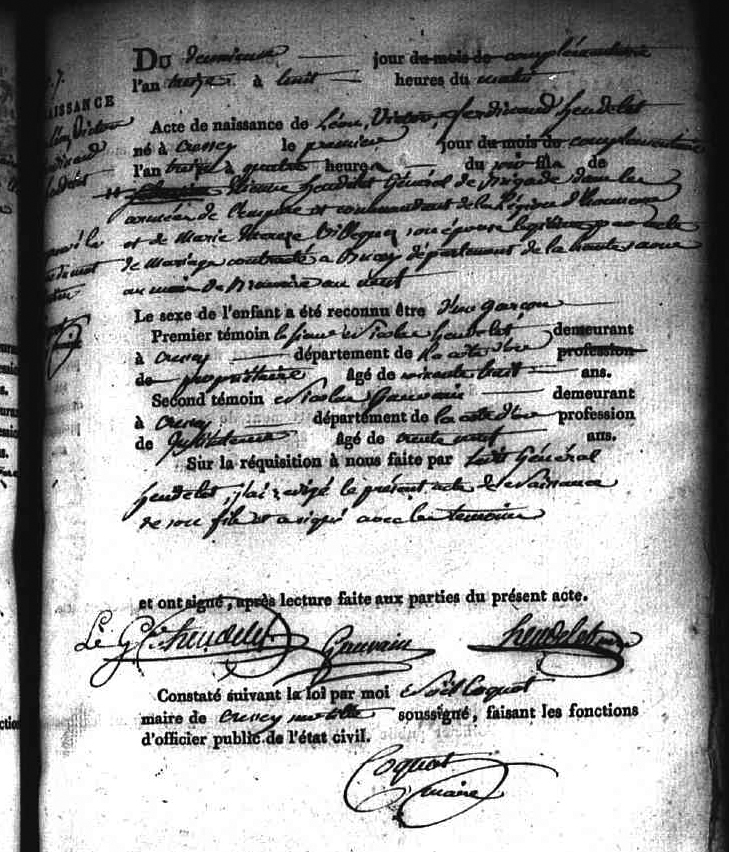 NAISSANCE
Du deuxieme jour du mois de complémentaire
l'an treize à huit heures du matin
Acte de naissance de Léon, Victor, Ferdinand heudelet
né à Cussey le premiere jour du mois de complementaire
l'an treize à quatre heures du soir fils de
Etienne heudelet Général de Brigade dans les
armées de l'empire et commandant de la Légion d'honneur
et de Marie therese Villequez son épouse legitime par acte
de Mariage contracté a Bucey département de la haute saone
au mois de Brumaire an
Le sexe de l'enfant a été reconnu être d'un garçon
Premier témoin le sieur Nicolas heudelet demeurant
à Cussey département de la côte d'or profession
de propriétaire âgé de soixante huit ans.
Second témoin Nicolas Gauvain demeurant
à Cussey département de la côte d'or profession
de âgé de trente ans.
Sur la réquisition à nous faite par ledit Général
heudelet, j'ai redigé le présent acte de Naissance
de son fils et a signé avec les temoins
et ont signé, après lecture faite aux parties du présent acte.
Le G.al heudelet Gauvain heudelet
Constaté suivant la loi par moi Noël Coquot
maire de Cussey sur tille soussigné, faisant les fonctions
d'officier public de l'état civil.
Coquot
maire